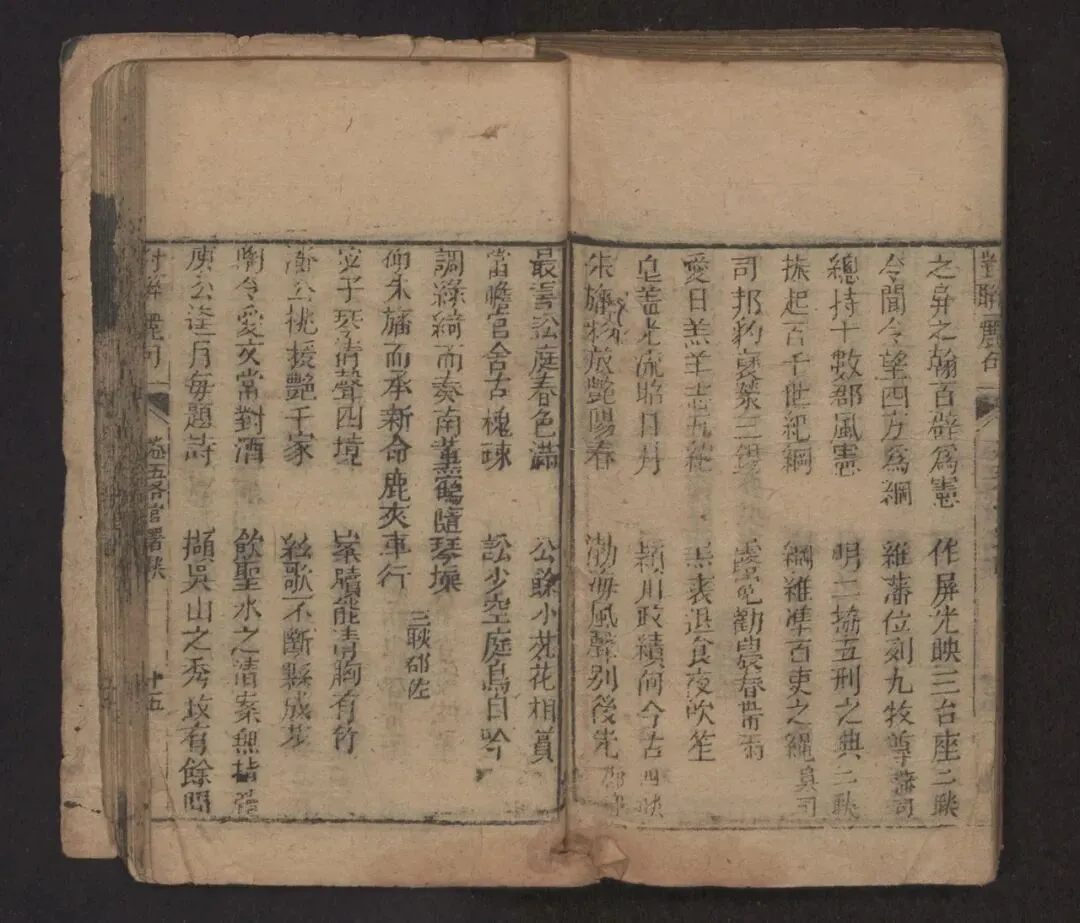 對聯麗句
之屏之翰百辟爲憲　作屏光映三台座二聯
令聞令望四方爲綱　維藩位列九牧尊藩司
總持十數郡風憲　明二協五刑之典二聯
振起百千世紀綱　綱維準百吏之繩臬司
司邦豹　三　露冕勸農春帶雨
愛日羔羊　五　　退食夜吹笙
皂蓋光流昭日月　潁川政績何今古四聯
朱旛　旂艷陽春　渤海風聲別後先郡
最喜訟庭春色滿　公餘小苑花相賞
當瞻官舍古槐疎　訟少空庭鳥自吟
調綠綺而奏南薰鶴隨琴操
仰朱旛而承新命鹿夾車行　三聯郡佐
宓子琴清聲四境　案牘能清胸有竹
潘公桃援艷千家　絃歌不斷縣成花
陶令愛文常對酒　飲聖水之清案無
庾公逢月每題詩　擷吳山之秀政有餘閒
對聯麗句　卷五各官署聯　十五